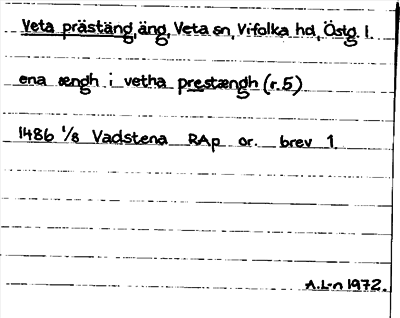 Veta prästäng, äng, Veta sn, Vifolka hd, Östg. l.
ena ængh i vetha prestængh (r. 5)
1486 1/8 Vadstena RAp or. brev 1.
A.L-n 1972.